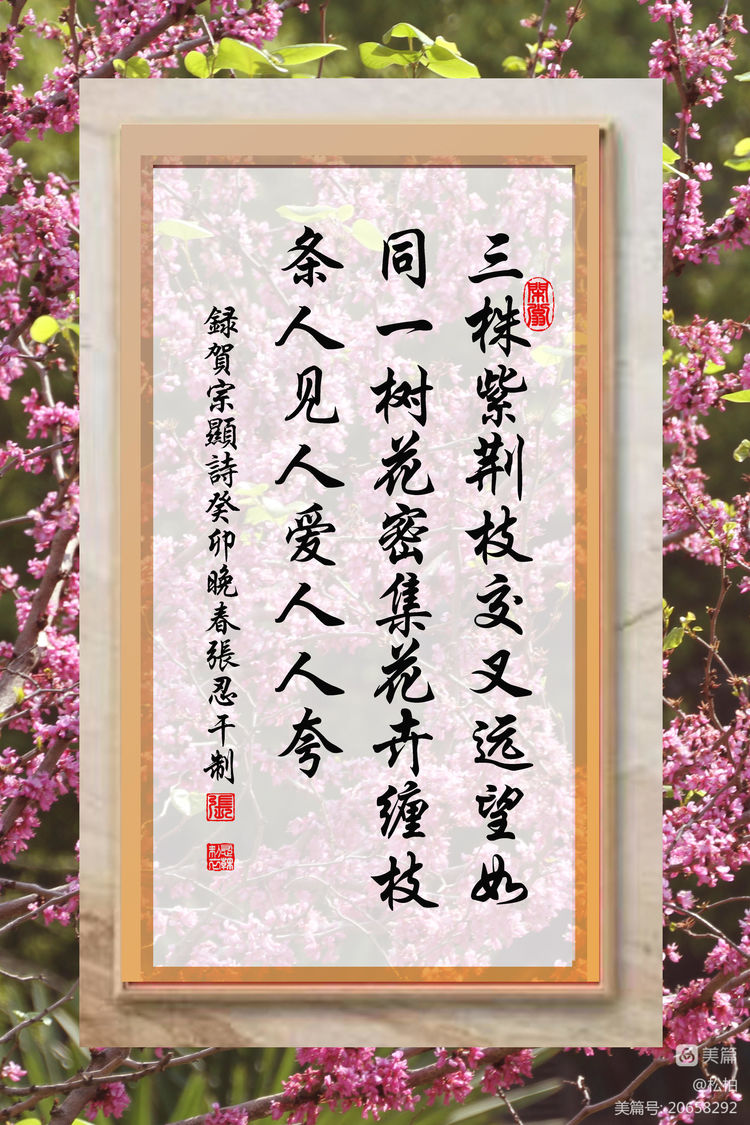 三株紫荆枝交叉远望如
同一树花密集花卉缠枝
条人见人爱人人夸
録賀宗顯詩癸卯晚春張忍干制
張
美篇
@松柏
美篇号: 20658292